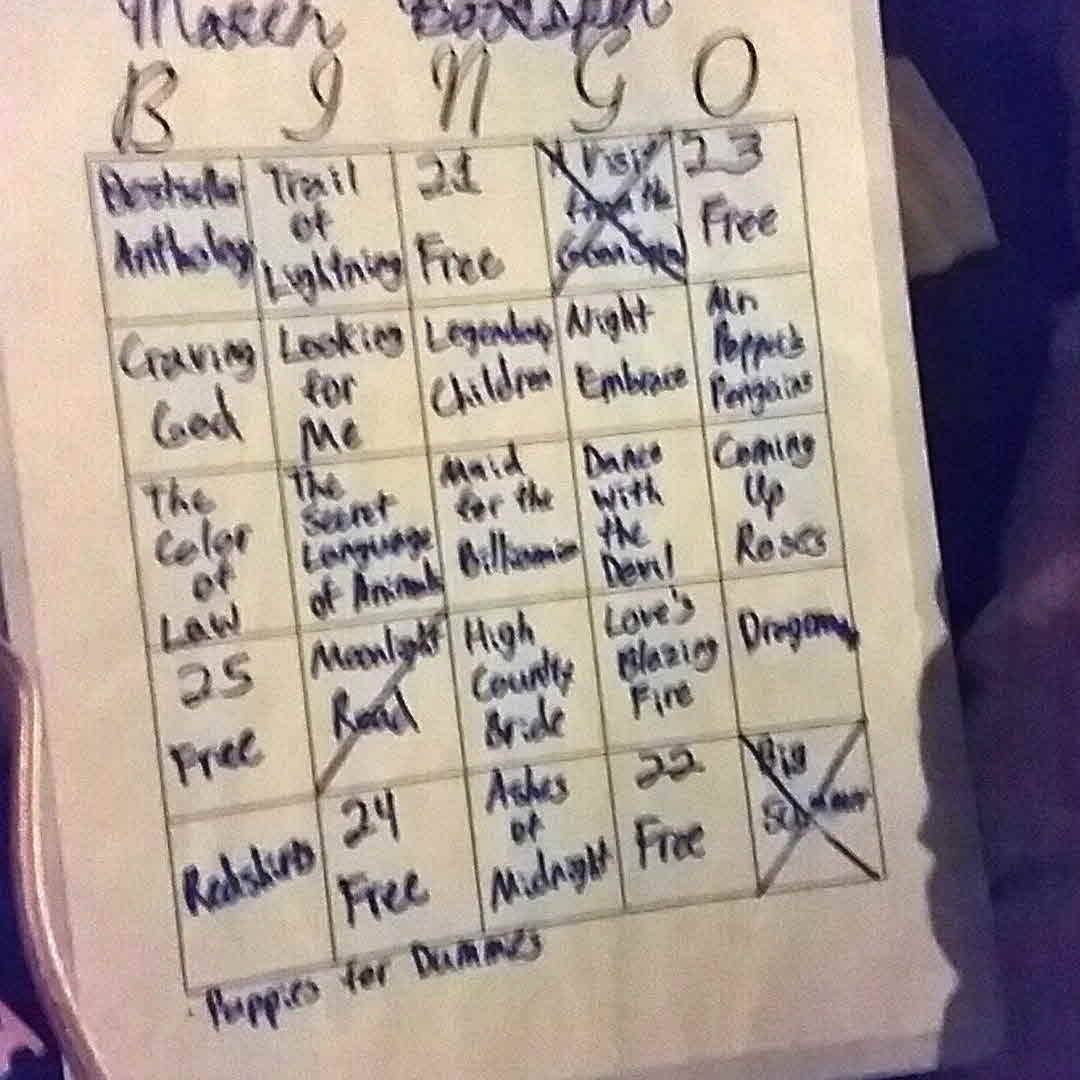 March Bookspin
B I N G O
Bestseller
Anthology
Trail
of
Lightning
21
Free
A Visit
from the
Goon Squad
23
Free
Craving
God
Looking
for
Me
Legendary
Children
Night
Embrace
Mr.
Popper's
Penguins
The
Color
of
Law
The
Secret
Language
of Animals
Maid
for the
Billionaire
Dance
with
the
Devil
Coming
Up
Roses
25
Free
Moonlight
Road
High
County
Bride
Love's
Blazing
Fire
Redshirts
24
Free
Ashes
of
Midnight
22
Free
Big
Puppies for Dummies